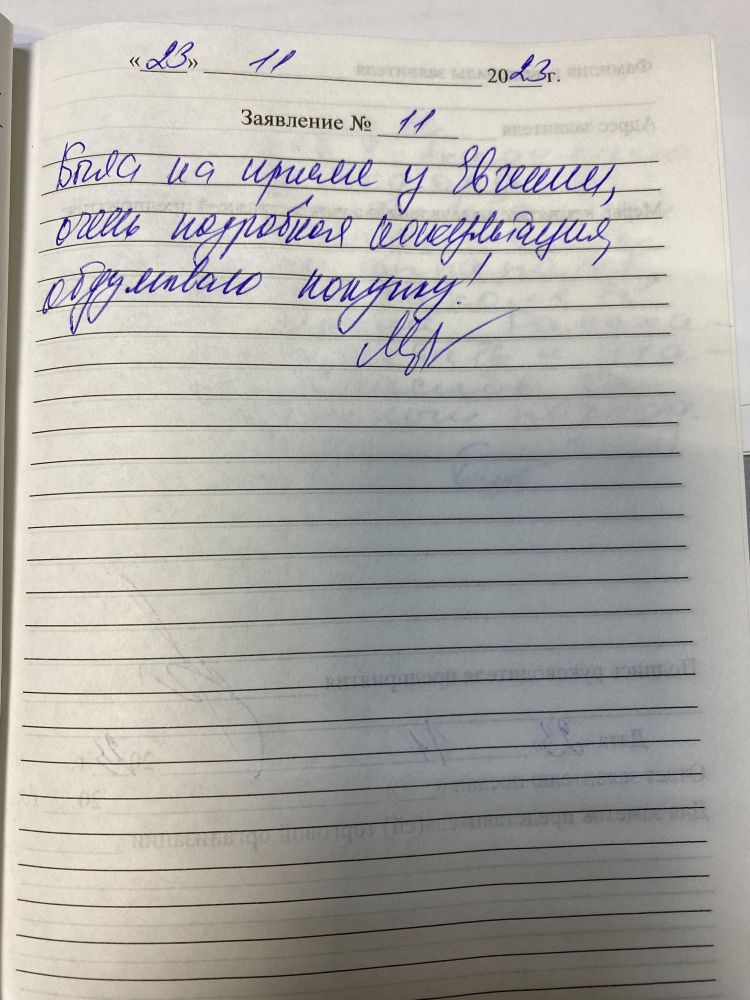 «23» 11 2023 г.
Заявление № 11
Была на приеме у Евгении,
очень подробная консультация,
обдумываю покупку!